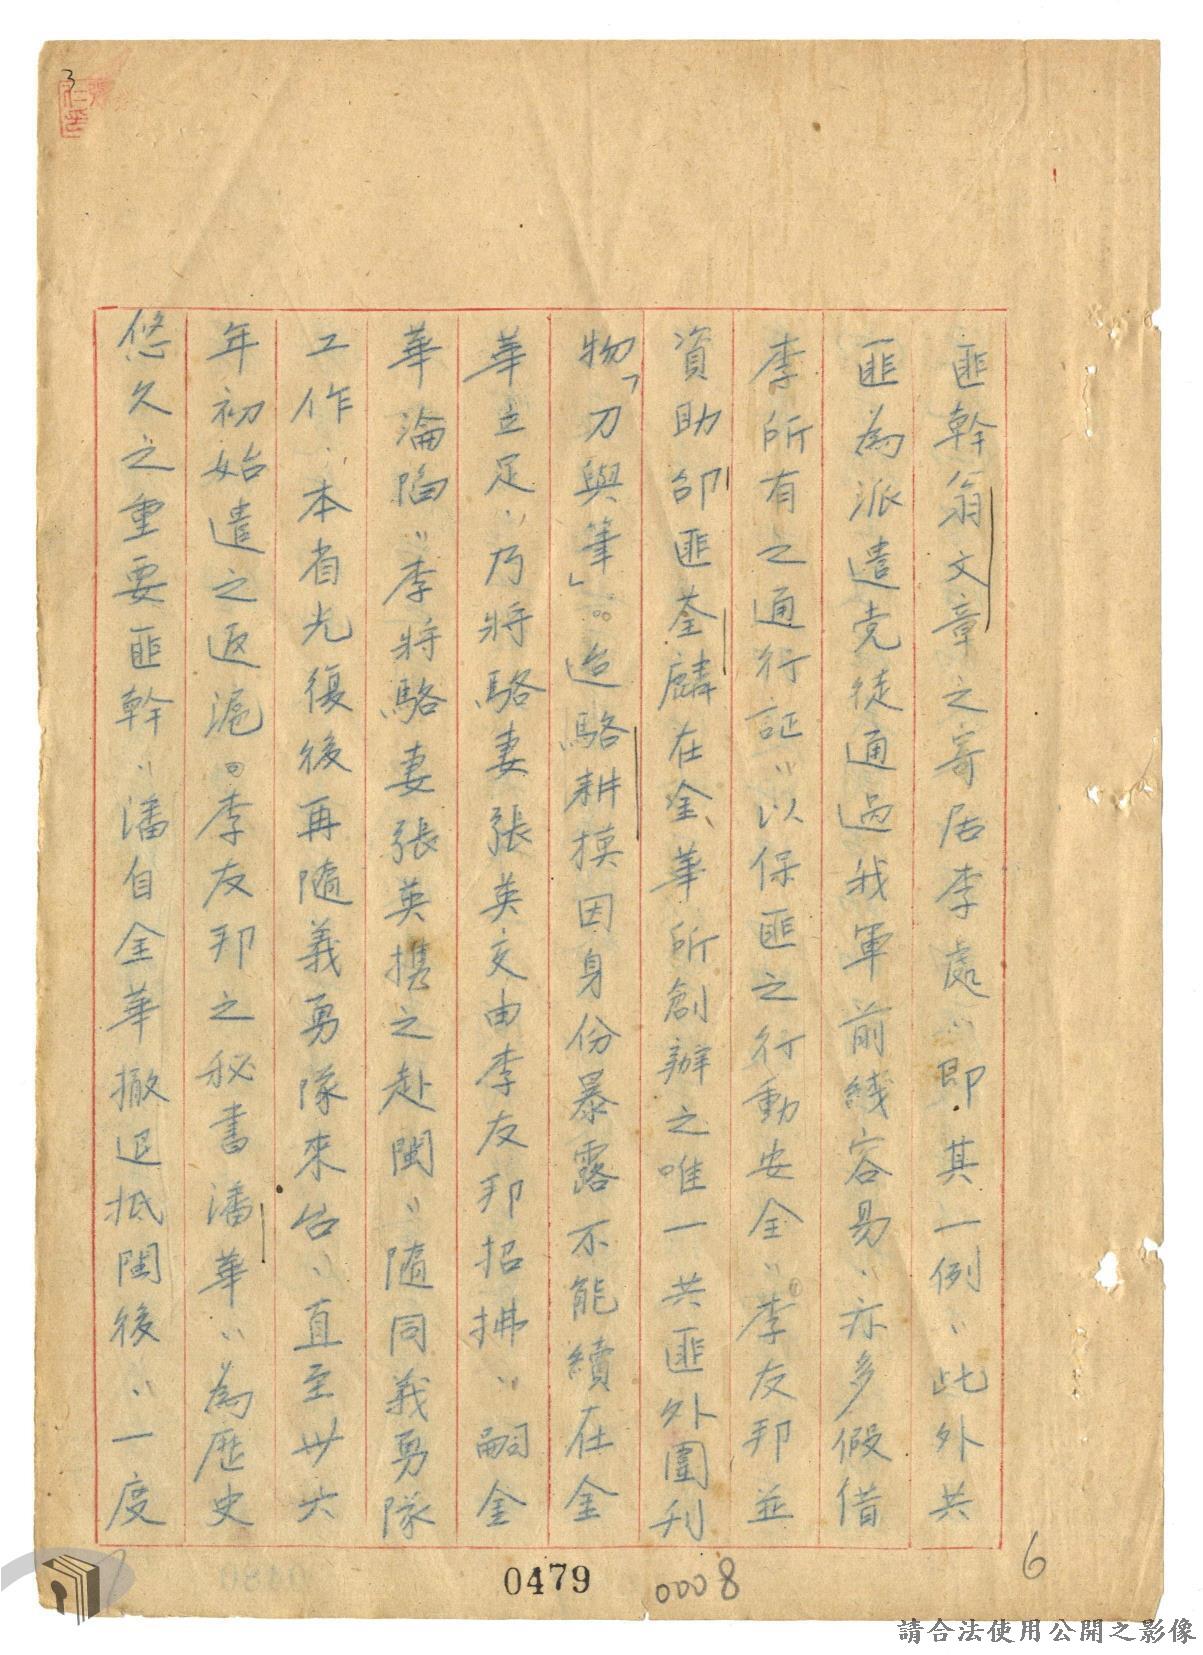 匪幹翁文章之寄居李處，即其一例，此外共
匪為派遣党徒通過我軍前綫容易，亦多假借
李所有之通行証，以保匪之行動安全，李友邦並
資助邵匪荃麟在金華所創辦之唯一共匪外圍刊
物「刀與筆」。迨駱耕摸因身份暴露不能續在金
華立足，乃將駱妻張英交由李友邦招拂，嗣金
華淪陷，李將駱妻張英携之赴閩，隨同義勇隊
工作，本省光復後再隨義勇隊來台，直至卅六
年初始遣之返滬。李友邦之秘書潘華，為歷史
悠久之重要匪幹，潘自金華撤退抵閩後，一度
0479
0008
6
3
請合法使用公開之影像